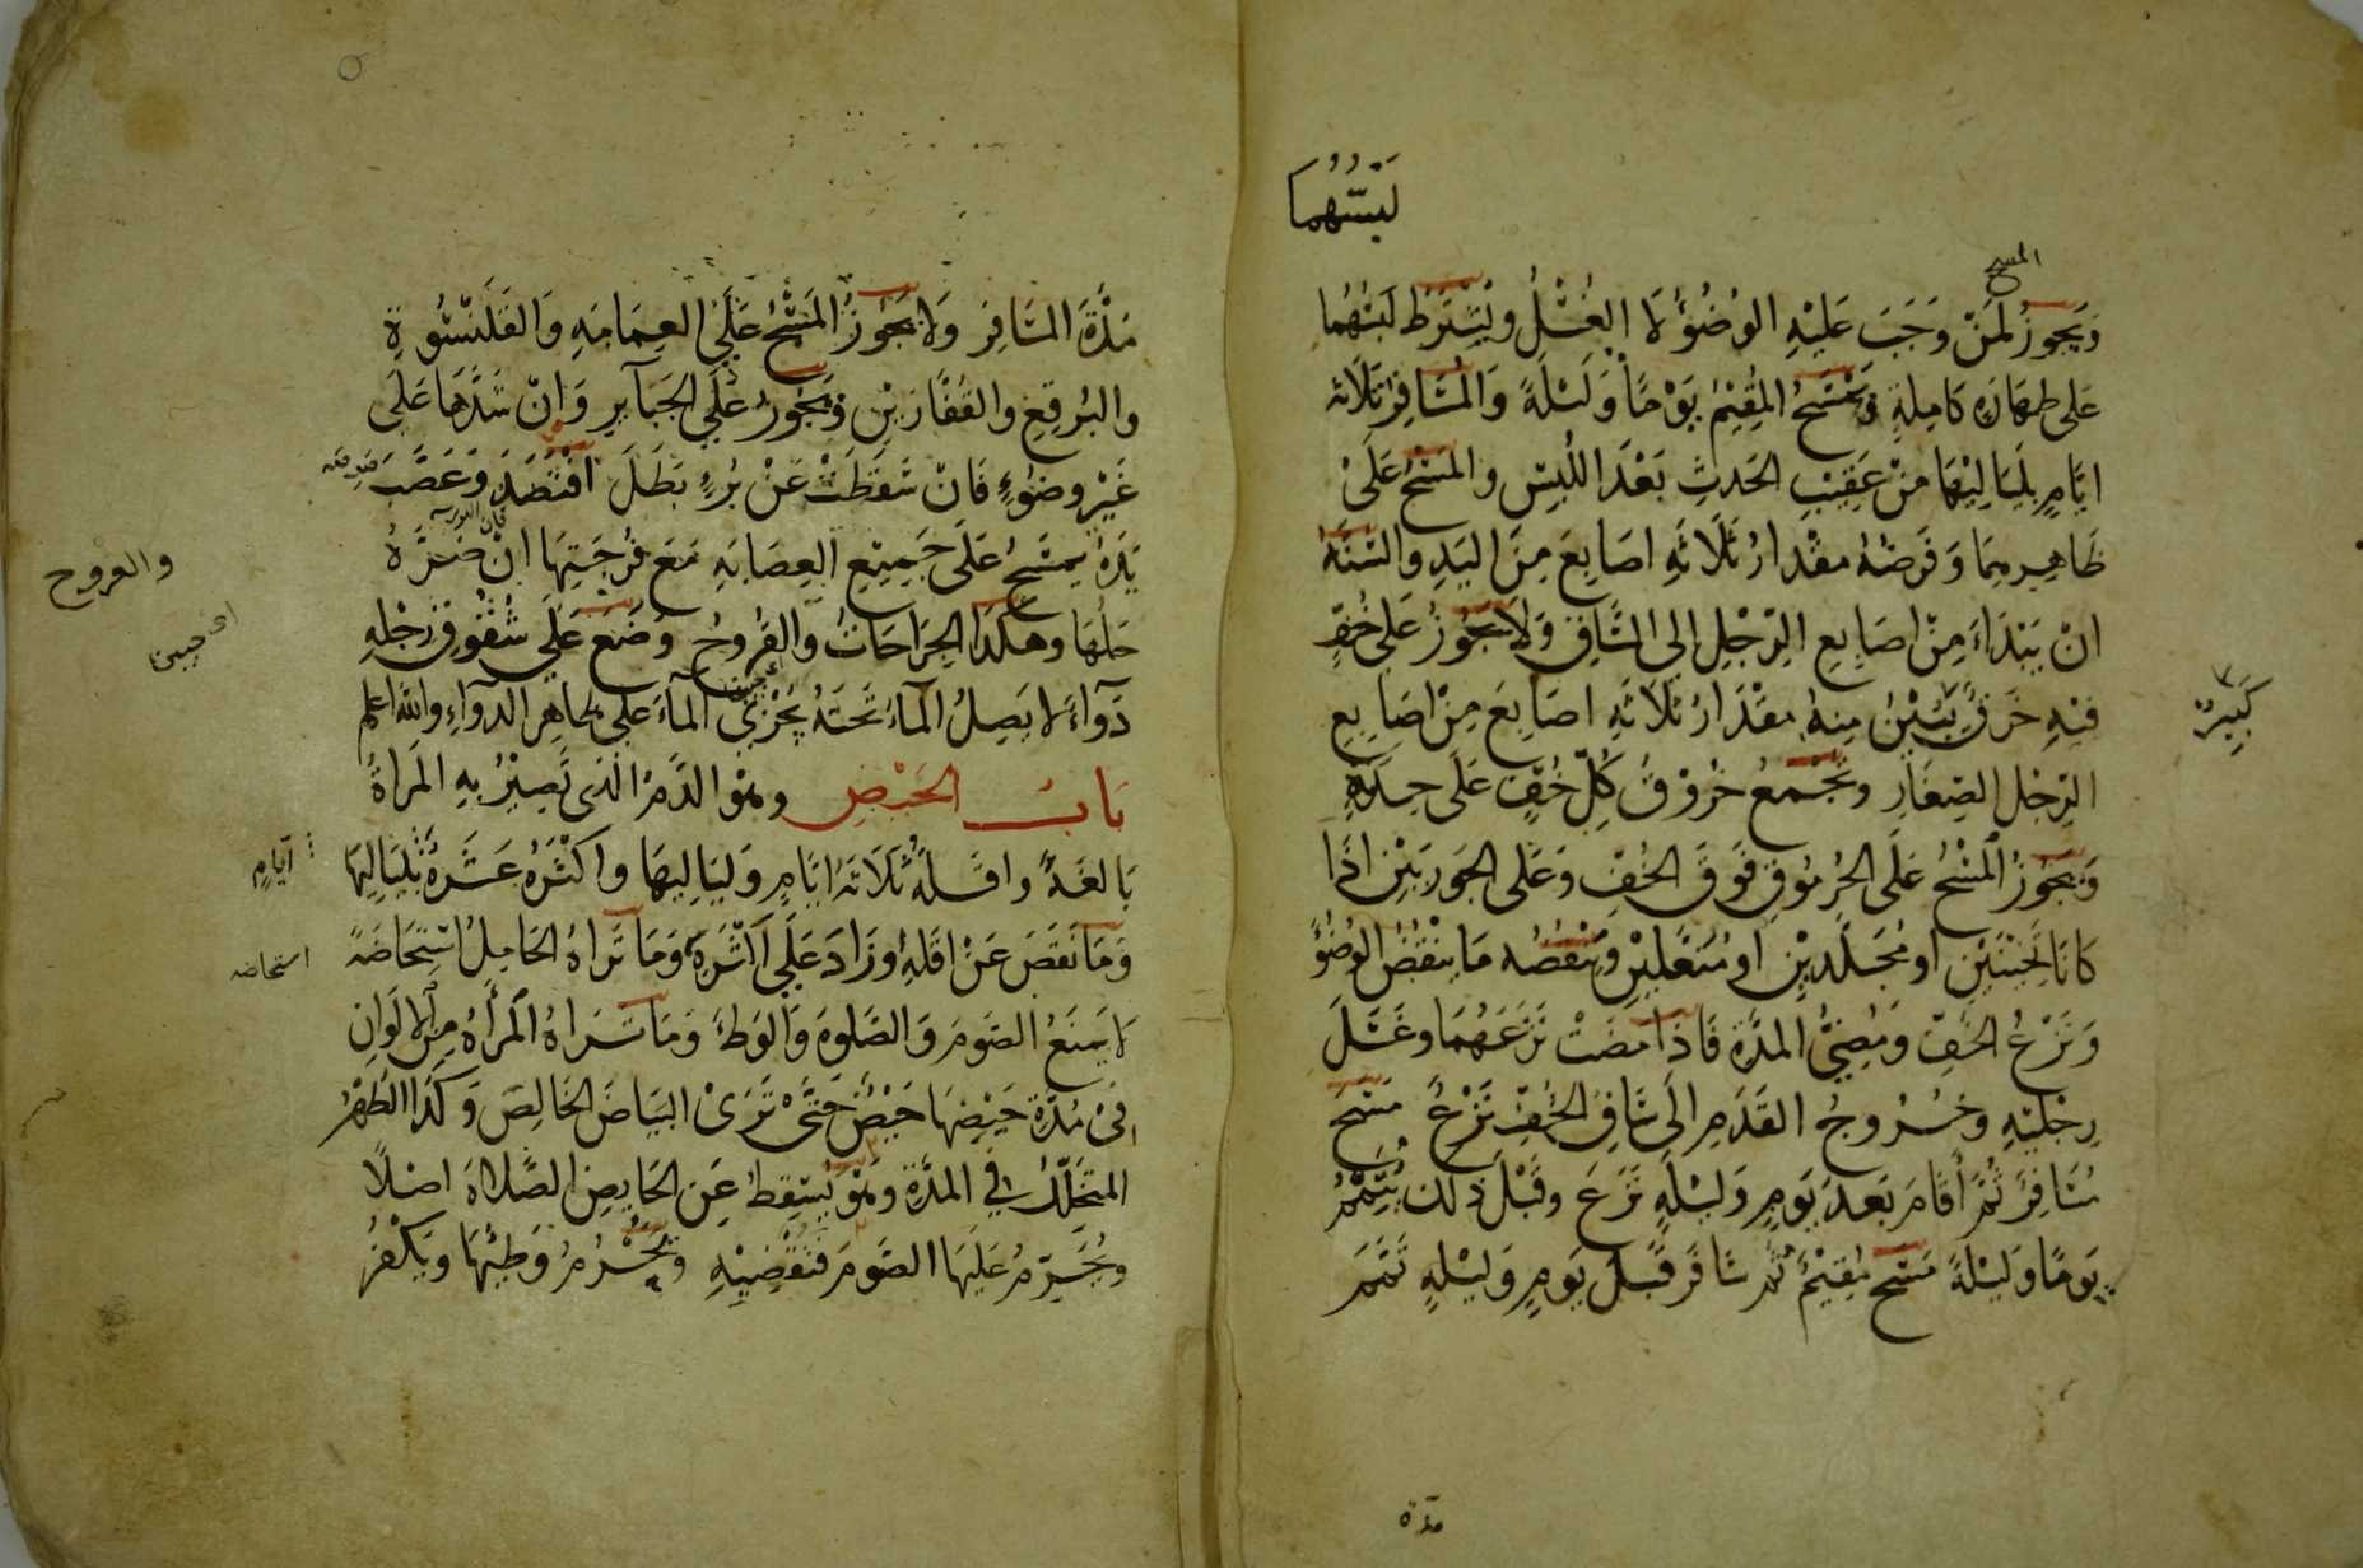 لبستهما
المسح
ويجوز لمن وجب عليه الوضوء لا الغسل ويشترط لبسهما
على طهارة كاملة ويمسح المقيم يوما وليلة والمسافر ثلاثه
ايام بلياليها من عقيب الحدث بعد اللبس والمسح على
ظاهرهما وفرضه مقدار ثلاثه اصابع من اليد والسنه
ان يبتداء من اصابع الرجل الى الساق ولا يجوز على خف
فيه خرق يبين منه مقدار ثلاثه اصابع من اصابع
كبير
الرجل الصغار وتجمع خروق كل خف على حدة
ويجوز المسح على الجرموق فوق الخف وعلى الجوربين اذا
كانا ثخينين او مجلدين او منعلين وينقضه ما ينقض الوضوء
ونزع الخف ومضي المدة فاذا مضت نزعهما وغسل
رجليه وخروج القدم الى ساق الخف نزع مسح
مسافر ثم اقام بعد يوم وليله نزع وقبل ذلك يتمم
يوما وليلة مسح مقيم ثم سافر قبل يوم وليله تمم
مدة
مدة المسافر ولا يجوز المسح على العمامه والقلنسوة
والبرقع والقفازين ويجوز على الجباير وان شدها على
غير وضوء فان سقطت عن برء بطل افتصد وعصب
يده يمسح على جميع العصابه مع فرجتها ان ضره
والقروح
حلها وهكذا الجراحات والقروح وضع على شقوق رجله
دواء لا يصل الماء تحته يجزي الماء على ظاهر الدواء والله اعلم
باب الحيض وهو الدم الذى تصير به المراة
بالغة واقله ثلاثة ايام ولياليها واكثره عشرة بلياليها
ايام
وما نقص عن اقله وزاد على اكثره وما تراه الحامل استحاضة
استحاضه
لا يمنع الصوم والصلوة والوطء وما تراه المراه من الالوان
فى مدة حيضها حيض حتى ترى البياض الخالص وكذا الطهر
المتخلل في المدة وهو يسقط عن الحايض الصلاة اصلا
ويحرم عليها الصوم فتقضيه ويحرم وطيها ويكفر